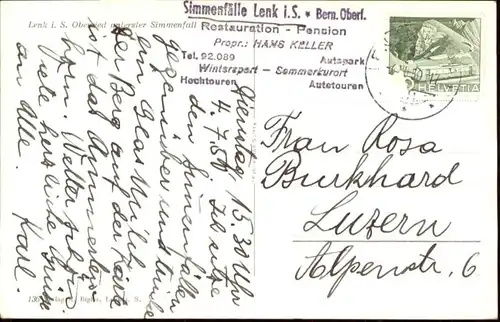 Lenk i. S. Oberried unterster Simmenfall
Simmenfälle Lenk i.S. * Bern. Oberl.
Restauration - Pension
Propr.: HANS KELLER
Tel. 92.089 Autopark
Wintersport - Sommerkurort
Hochtouren Autotouren
HELVETIA
Dienstag 15.30 Uhr
4.7.50 Ich sitze
den Simmenfällen
gegenüber und trinke
ein Glas Milch.
Der Berg auf der Karte
ist das Ammerten-
horn. Wetter schön.
Viele herzliche Grüsse
an Alle. Karl.
Frau Rosa
Burkhard
Luzern
Alpenstr. 6